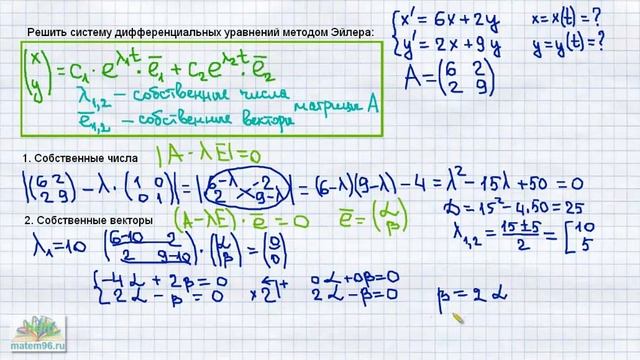 Решить систему дифференциальных уравнений методом Эйлера:
{x' = 6x + 2y   x = x(t) = ?
{y' = 2x + 9y   y = y(t) = ?
(x y) = C₁ · e^(λ₁t) · e̅₁ + C₂ e^(λ₂t) · e̅₂
λ₁,₂ – собственные числа
матрицы A
e̅₁,₂ – собственные вектора
A = (6 2
2 9)
1. Собственные числа   |A - λE| = 0
|(6 2 2 9) - λ · (1 0 0 1)| = |6-λ 2 2 9-λ| = (6-λ)(9-λ) - 4 = λ² - 15λ + 50 = 0
D = 15² - 4·50 = 25
λ₁,₂ = (15 ± 5)/2 = [10
5
2. Собственные векторы   (A - λE) · e̅ = 0   e̅ = (α β)
λ₁ = 10   (6-10 2 2 9-10) · (α β) = (0 0)
{-4α + 2β = 0   0α + 0β = 0
{2α - β = 0   ×2 +   2α - β = 0   β = 2α
matem96.ru